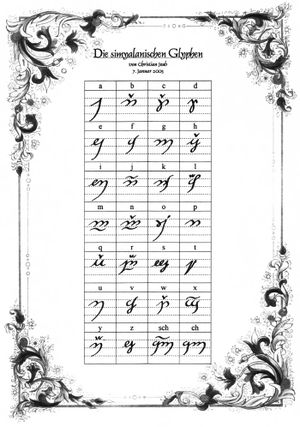 Die simyalanischen Glyphen
von Christian Jaub
7. Januar 2005
a b c d
e f g h
i j k l
m n o p
q r s t
u v w x
y z sch ch